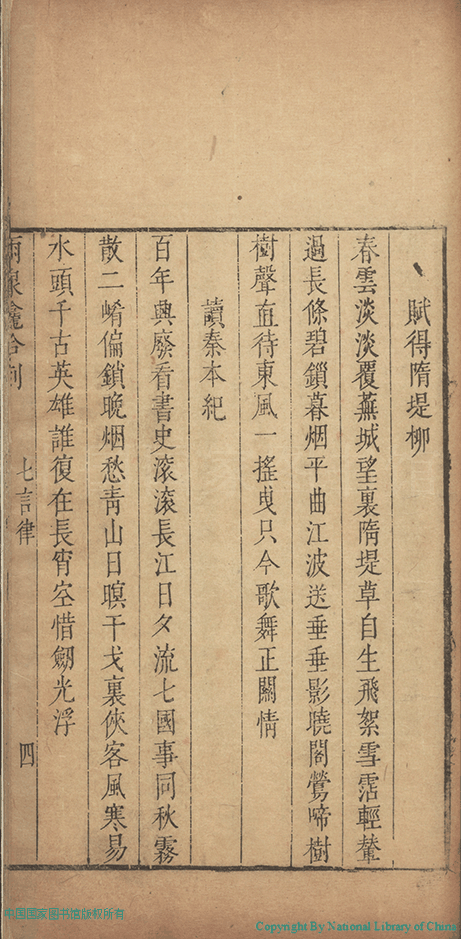 賦得隋堤柳
春雲淡淡覆蕪城望裏隋堤草自生飛絮雪霑輕輦
過長條碧鎖暮烟平曲江波送垂垂影曉閣鶯啼樹
樹聲直待東風一搖曳只今歌舞正關情
讀秦本紀
百年興廢看書史滚滚長江日夕流七國事同秋霧
散二崤偏鎖晚烟愁靑山日暝干戈裏俠客風寒易
水頭千古英雄誰復在長宵空惜劒光浮
七言律
四
中国国家图书馆版权所有
Copyright By National Library of China